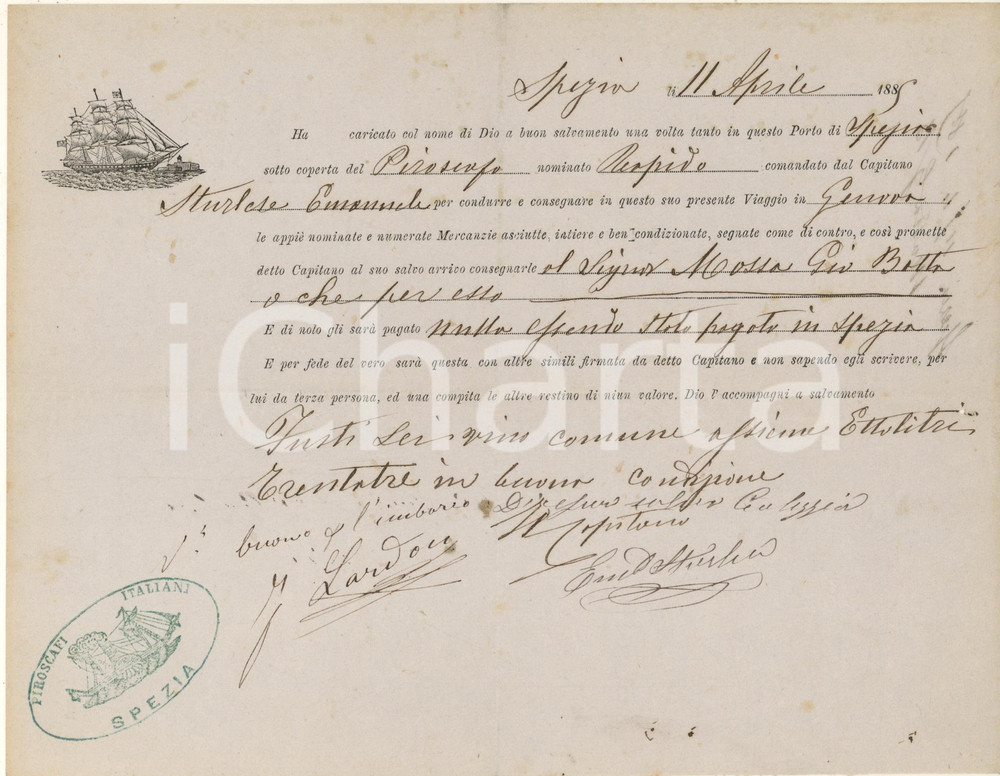 Spezia li 11 Aprile 1885
Ha caricato col nome di Dio a buon salvamento una volta tanto in questo Porto di Spezia
sotto coperta del Piroscafo nominato Rapido comandato dal Capitano
Sturlese Emanuele per condurre e consegnare in questo suo presente Viaggio in Genova
le appiè nominate e numerate Mercanzie asciutte, intiere e ben condizionate, segnate come di contro, e così promette
detto Capitano al suo salvo arrico consegnarle al Signor Mossa Gio Batta
o che per esso
E di nolo gli sarà pagato nulla essendo stato pagato in Spezia
E per fede del vero sarà questa con altre simili firmata da detto Capitano e non sapendo egli scrivere, per
lui da terza persona, ed una compita le altre restino di niun valore. Dio l'accompagni a salvamento
Fusti sei vino comune assieme Ettolitri
Trentatre in buona condizione
buono l'imbarco
Il Capitano
PIROSCAFI ITALIANI
SPEZIA
iCharta